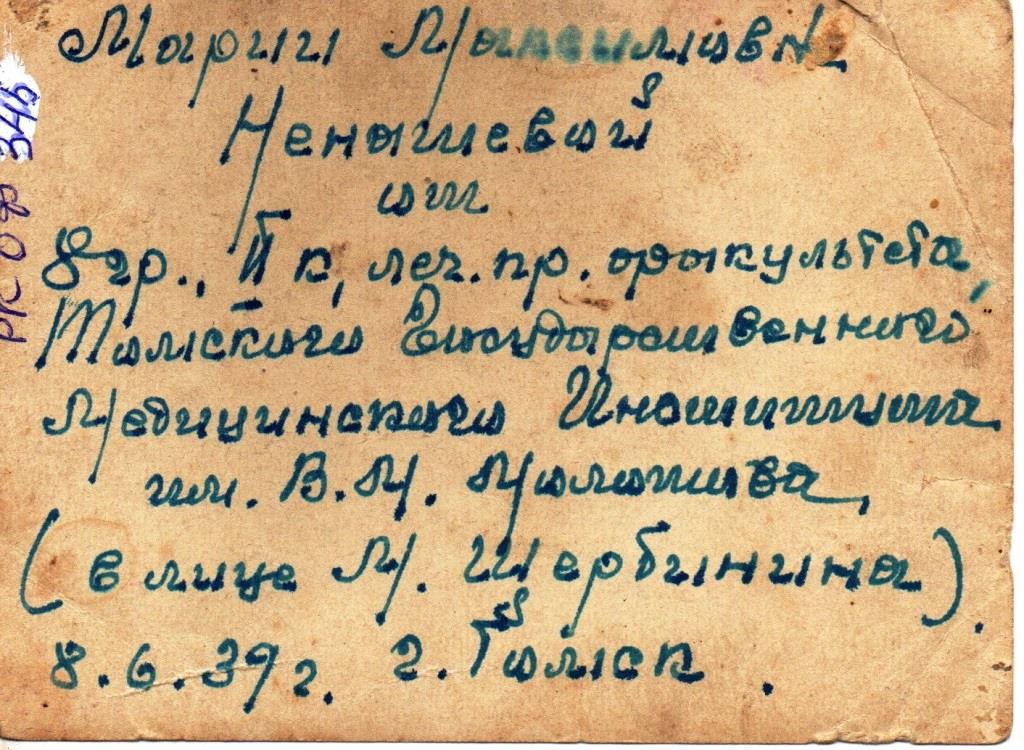 Марии Максимовне
Ненашевой
от
8 гр., II к, леч. пр. факультета,
Томского Государственного
Медицинского Института
им. В. М. Молотова,
(в лице М. Щербинина).
8.6.39 г. г. Томск.
РК ОФ 346